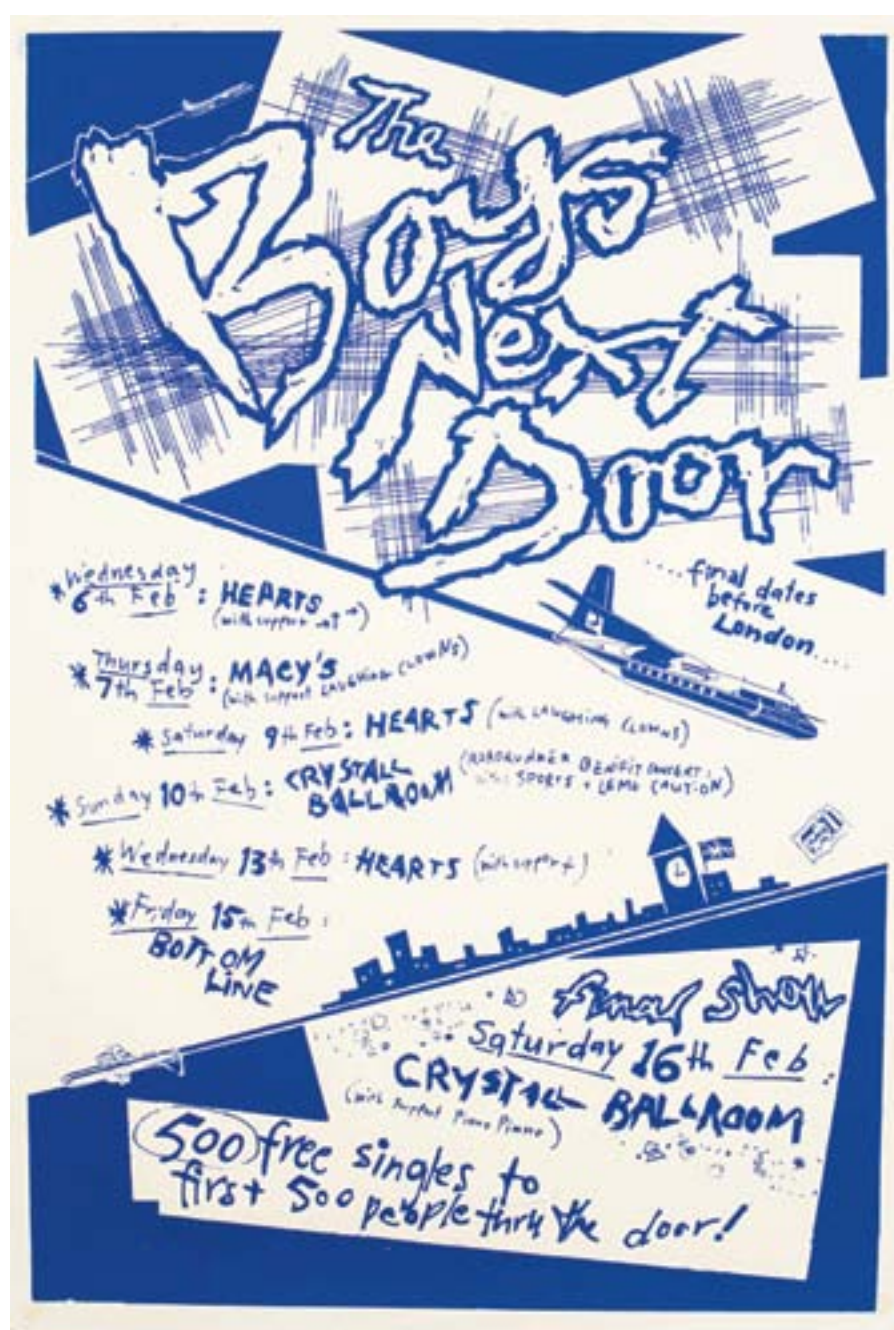 The
Boys
Next
Door
....final dates
before
London....
* Wednesday
6th Feb : HEARTS
(with support → ↑ →)
* Thursday
7th Feb : MACY'S
(with support LAUGHING CLOWNS)
* Saturday 9th Feb : HEARTS (with LAUGHING CLOWNS)
* Sunday 10th Feb : CRYSTALL
BALLROOM
(ROADRUNNER BENEFIT CONCERT :
with SPORTS + LEME CAUTION)
* Wednesday 13th Feb : HEARTS (with support)
* Friday 15th Feb :
BOTTOM
LINE
final show
Saturday 16th Feb :
CRYSTALL BALLROOM
(with support Piano Piano)
500 free singles to
first 500 people thru the door!